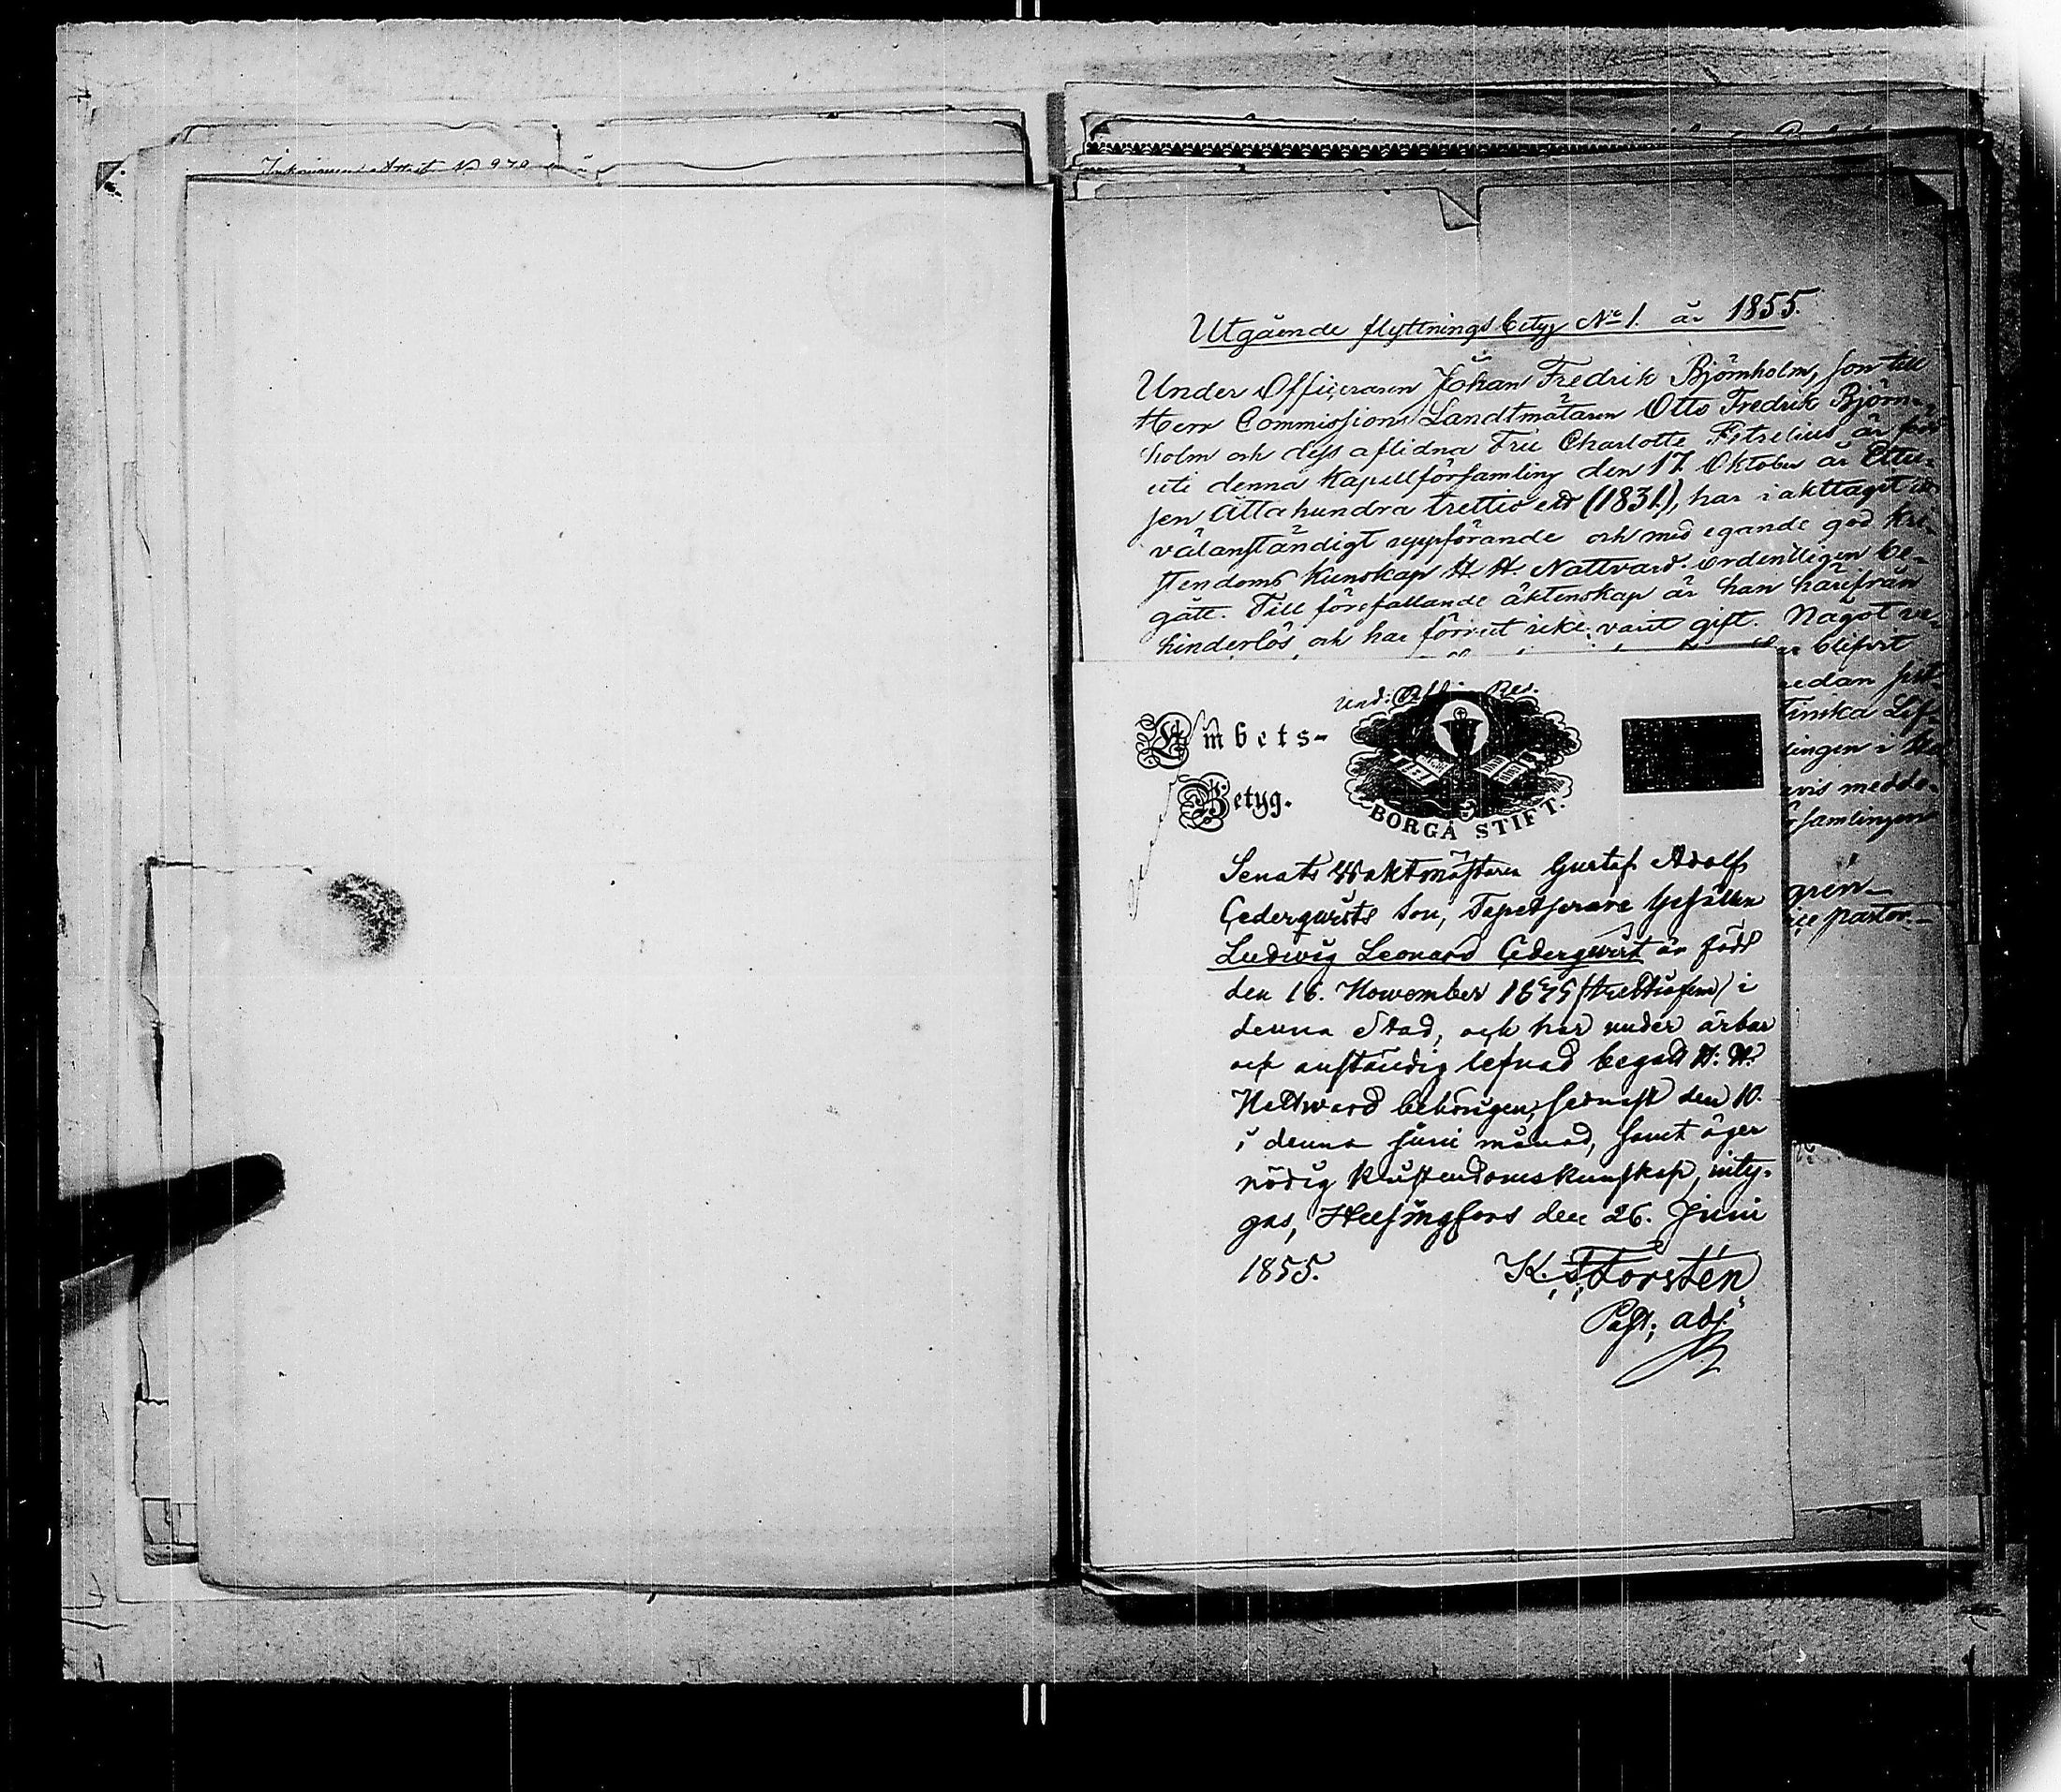 Inkommend. Attest. No 970
Utgående flyttningsbetyg No 1. år 1855.
Under Officeraren Johan Fredrik Björnholm, son till
Herr Commissions Landtmätaren Otto Fredrik Björn-
holm och dess aflidna Fru Charlotte är född
uti denna Kapellförsamling den 17 Oktober år Ader-
ton Åttahundra trettio ett (1831), har iakttagit
välanständigt uppförande och med egande god Kri-
stendoms Kunskap H. H. Nattvard ordentligen be-
gått. Till förefallande äktenskap är han härifrån
hinderlös, och har förrut icke varit gift. Något
blifvit
sedan
Finska
lingen i
vis medde-
församlingen
gren
pastor.
Und: Off: Res.
Ämbets-
Betyg.
BORGÅ STIFT.
Senats Waktmästaren Gustaf Adolf
Cederqwists Son, Tapetserare Gesällen
Ludwig Leonard Cederqwist är född
den 16. November 1835 (trettiofem) i
denna Stad, och har under ärbar
och anständig lefnad begått H: H:
Nattward behörigen, senast den 10.
i denna Juni månad, samt äger
nödig Kristendomskunskap, inty-
gas, Helsingfors den 26. Juni
1855.
K. F. Forstén
Past; adj.